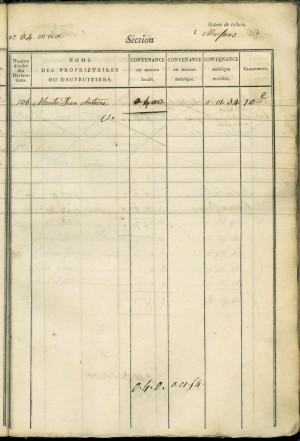 n° 64 ou
Nature de culture.
Section
Numéro d'ordre des Déclarations.
NOMS DES PROPRIÉTAIRES OU USUFRUITIERS.
CONTENANCE en mesure locale.
CONTENANCE en mesure métrique.
CONTENANCE métrique rectifiée.
CLASSEMENT.
106 Jean Antoine 0.4.00 0.01.54 10 e
0.4.0. 0.01.54